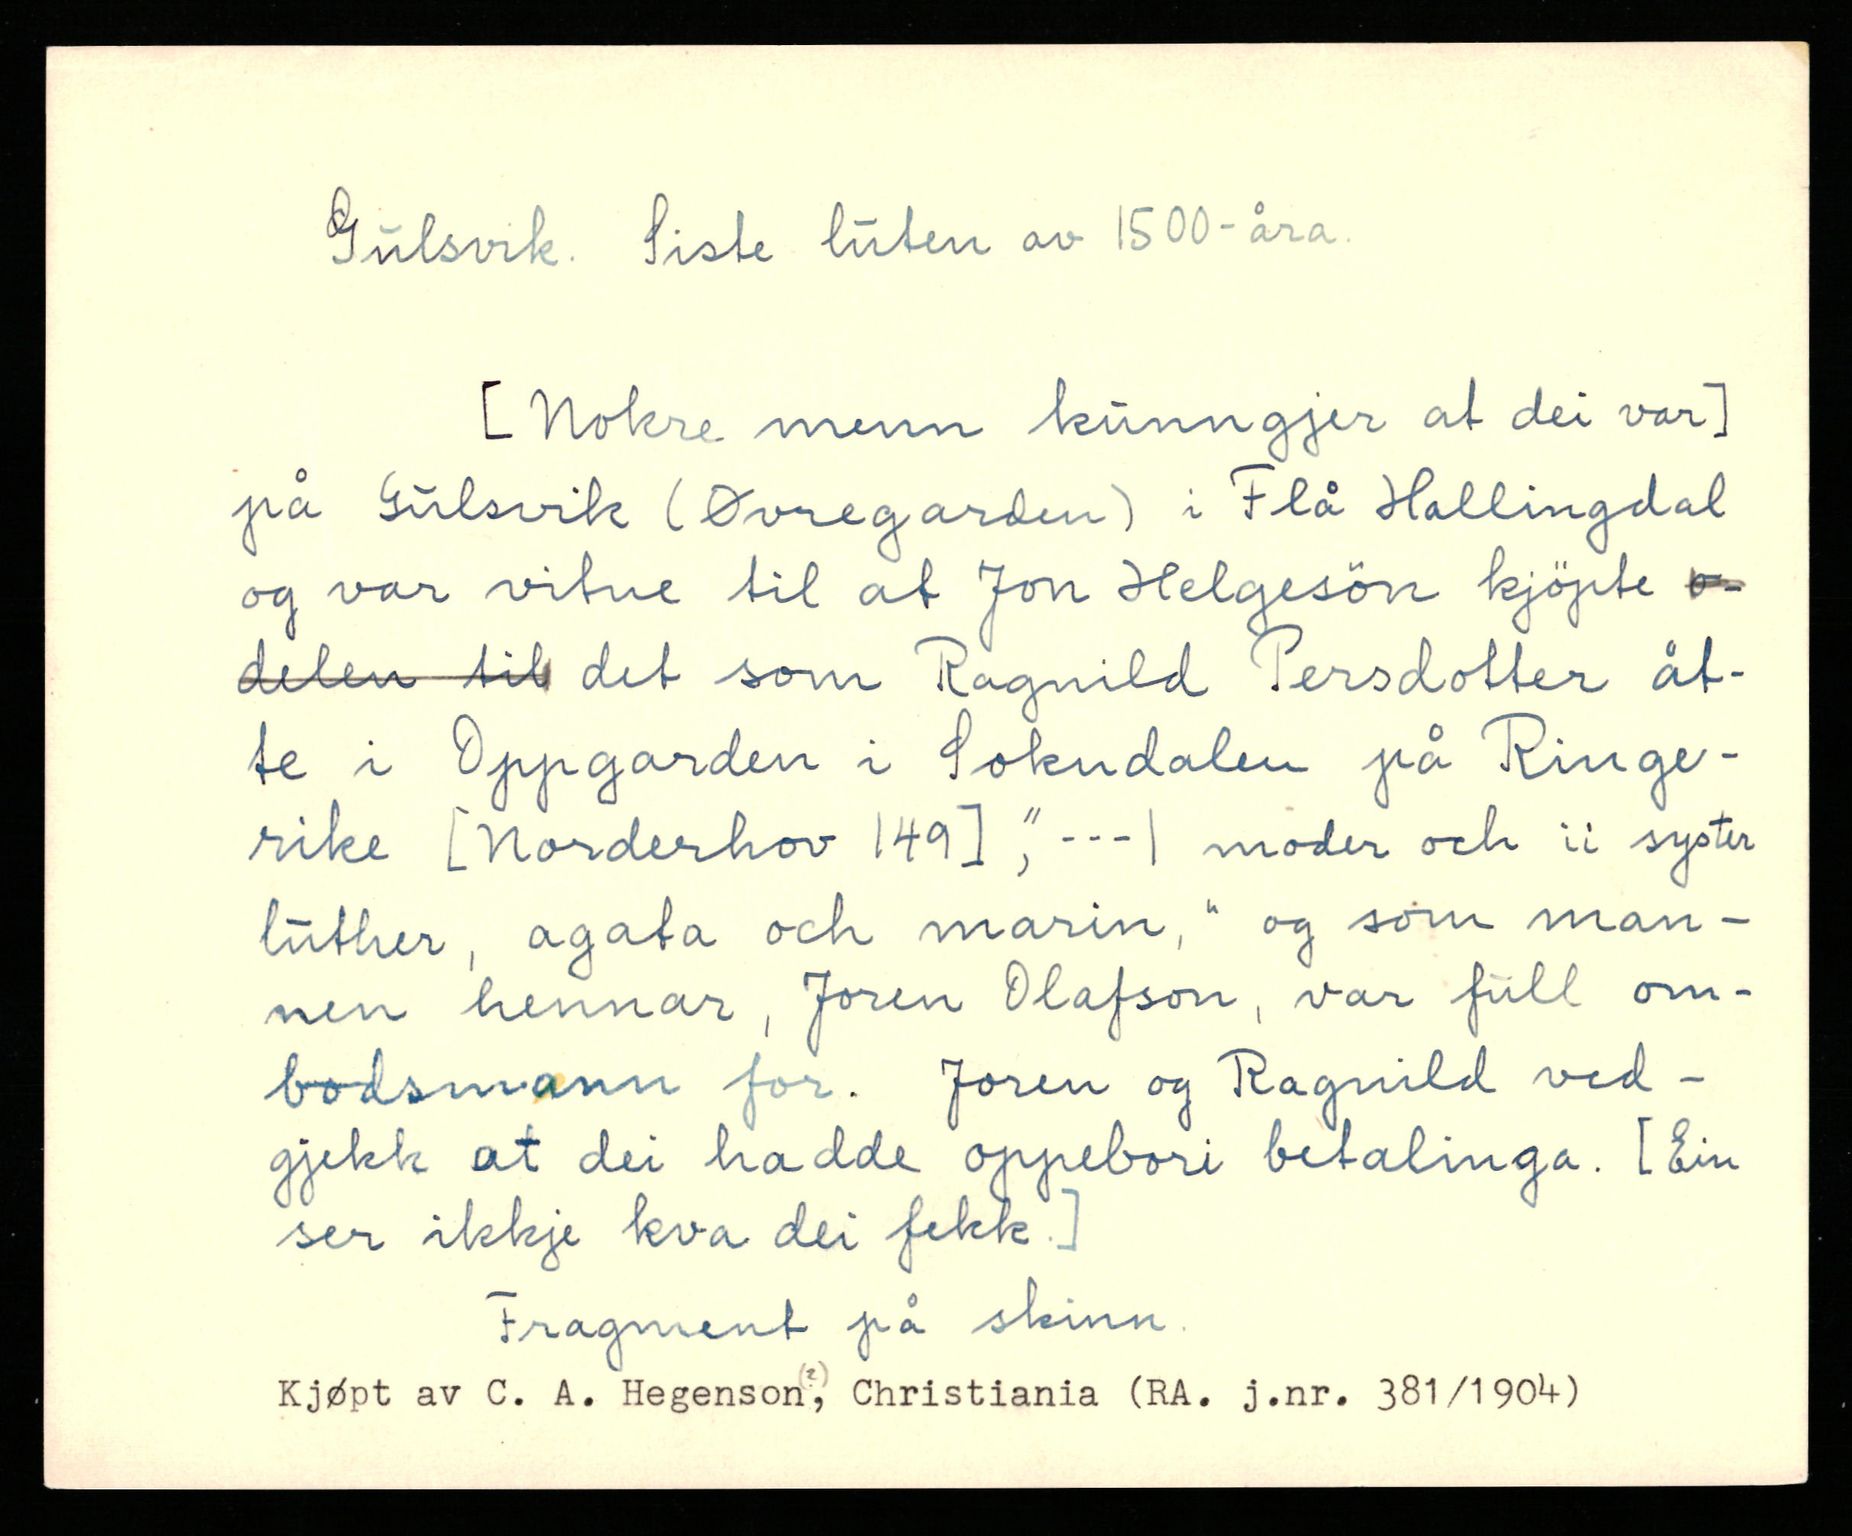 Gulsvik. Siste luten av 1500-åra.
[Nokre menn kunngjer at dei var]
på Gulsvik (Øvregarden) i Flå Hallingdal
og var vitne til at Jon Helgesön kjöpte o-
delen til det som Ragnild Persdotter åt-
te i Oppgarden i Sokndalen på Ringe-
rike [Norderhov 149], "---| moder och ii syster
luther, agata och marin," og som man-
nen hennar, Joren Olafson, var full om-
bodsmann for. Joren og Ragnild ved-
gjekk at dei hadde oppebori betalinga. [Ein
ser ikkje kva dei fekk.]
Fragment på skinn.
Kjøpt av C. A. Hegenson(?), Christiania (RA. j.nr. 381/1904)